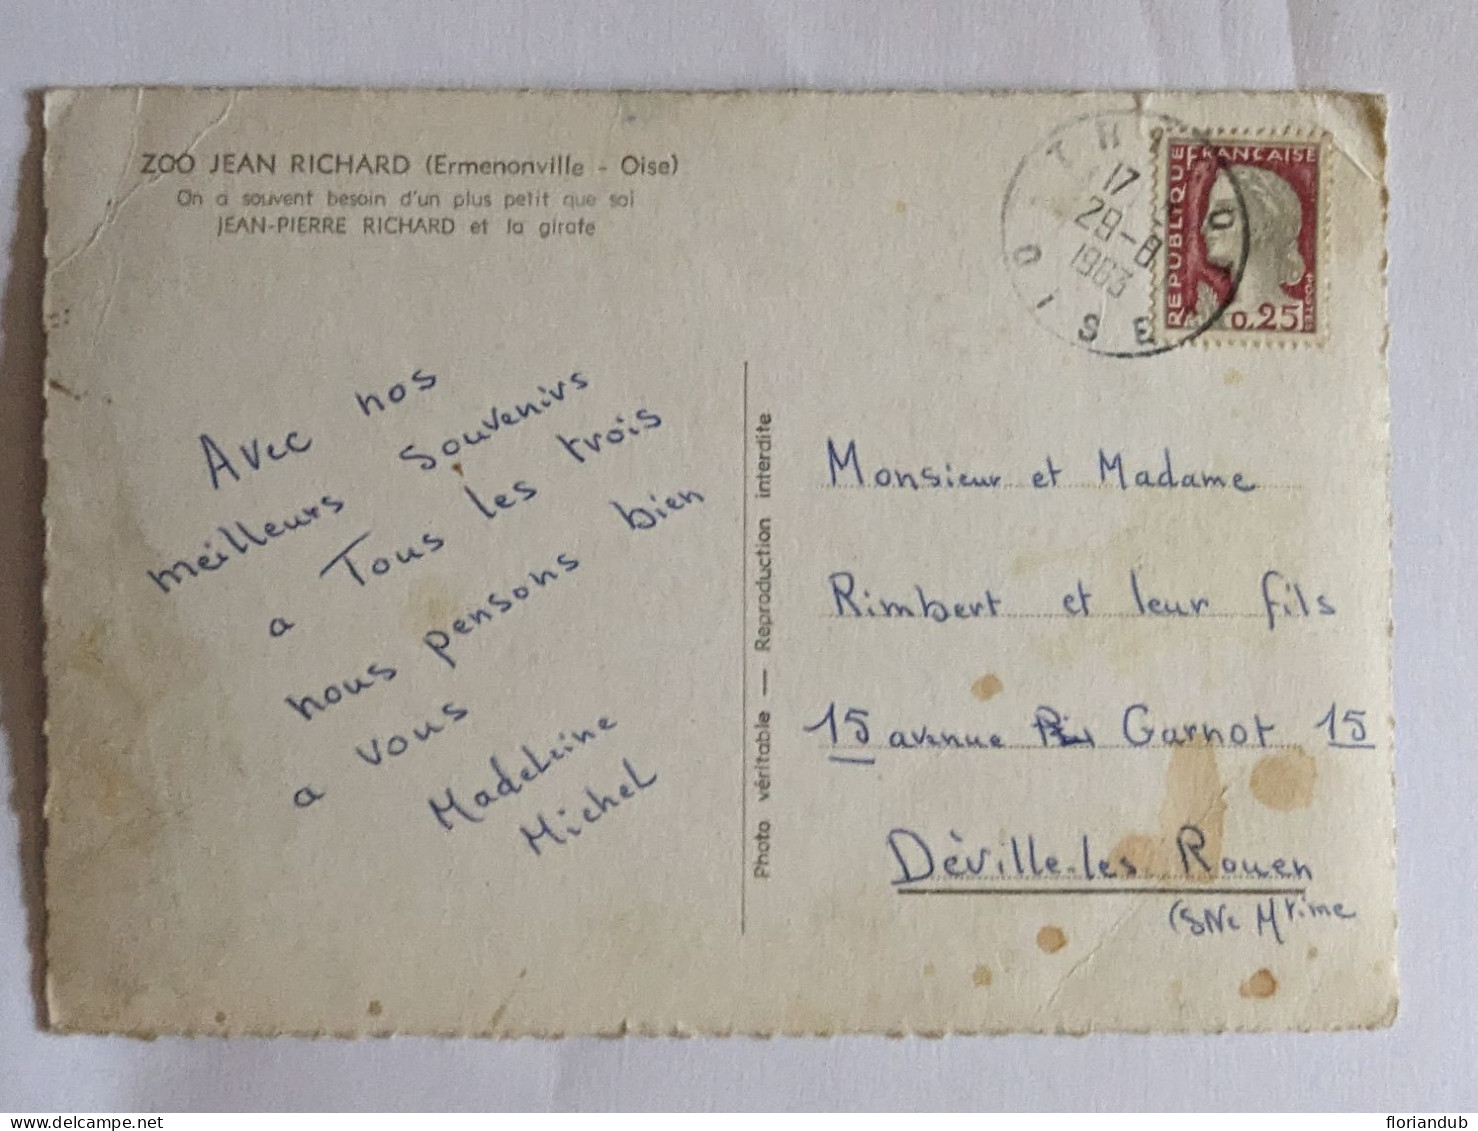 ZOO JEAN RICHARD (Ermenonville - Oise)
On a souvent besoin d'un plus petit que soi
JEAN-PIERRE RICHARD et la girafe
17
29-8
1963
OISE
REPUBLIQUE FRANÇAISE
0,25
Avec nos
meilleurs souvenirs
a Tous les trois
nous pensons bien
a vous
Madeleine
Michel
Photo véritable — Reproduction interdite
Monsieur et Madame
Rimbert et leur fils
15 avenue Garnot 15
Déville-les Rouen
(SNe Mrime
floriandub